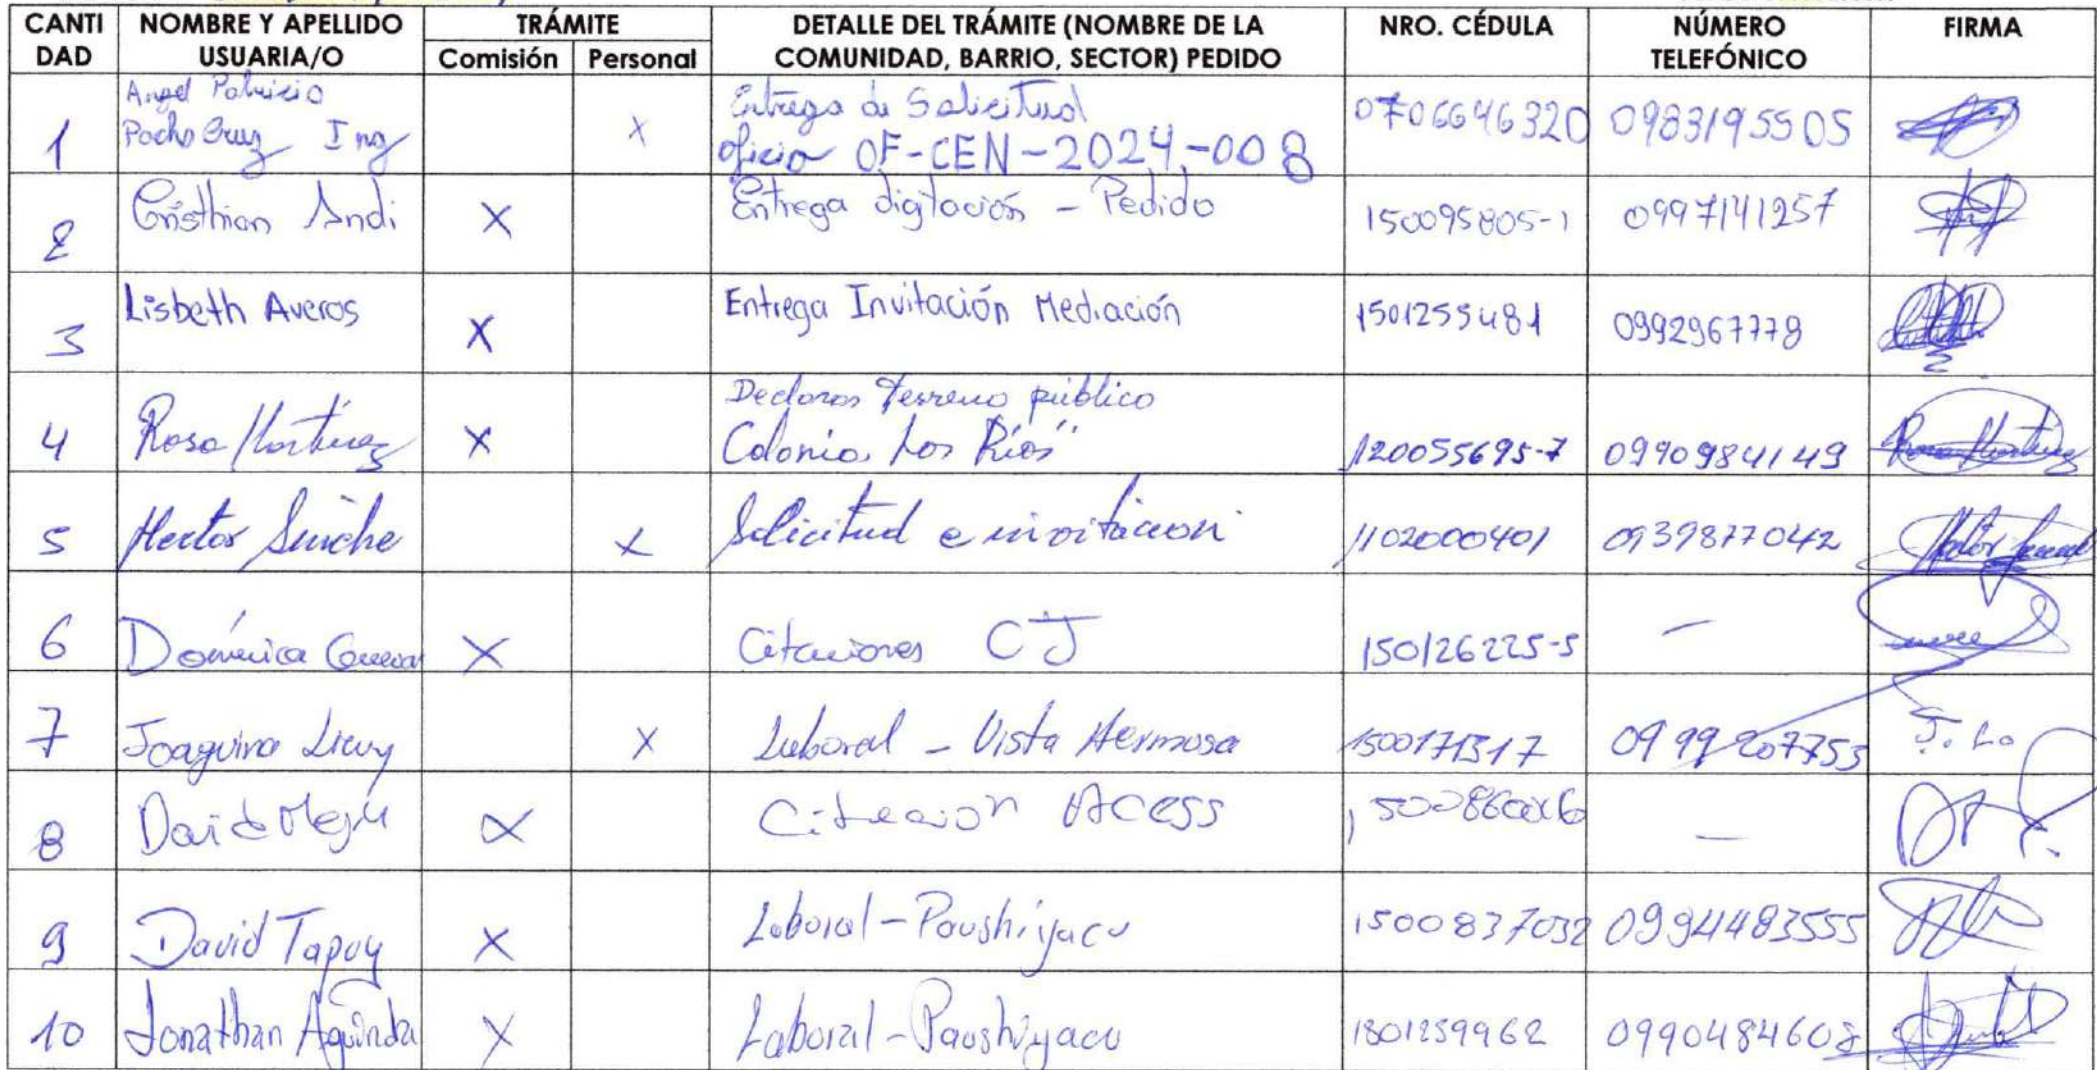 CANTI DAD NOMBRE Y APELLIDO USUARIA/O TRÁMITE Comisión Personal DETALLE DEL TRÁMITE (NOMBRE DE LA COMUNIDAD, BARRIO, SECTOR) PEDIDO NRO. CÉDULA NÚMERO TELEFÓNICO FIRMA
1 Angel Patricio Pacho Cruz Ing X Entrega de Solicitud oficio OF-CEN-2024-008 0706646320 0983195505
2 Cristhian Andi X Entrega digitación - Pedido 150095805-1 0997141257
3 Lisbeth Averos X Entrega Invitación Mediación 1501255481 0992967778
4 Rosa Martinez X Declaras Terreno público Colonia Los Ríos" 120055695-7 0990984149
5 Hector Sinche X Solicitud e invitacion 1102000401 0939877042
6 Doménica X Citaciones CJ 150126225-5 —
7 Joaquina X Laboral - Vista Hermosa 1500171317 0999207753
8 David X Citacion ACESS —
9 David Tapuy X Laboral - Paushiyacu 1500837032 0994483555
10 Jonathan Aguinda X Laboral - Paushiyacu 1501259962 0990484608